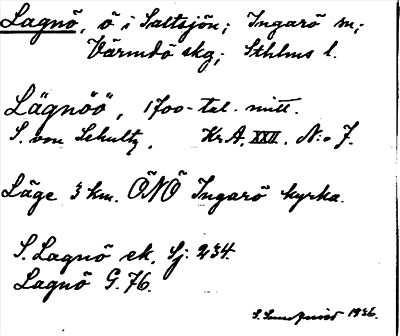 Lagnö, ö i Saltsjön; Ingarö sn;
Värmdö skg; Sthlms l.
Lägnöö, 1700-tal. mitt.
S. von Schultz, Kr.A. XXII. N:o 7.
Läge 3 km. ÖNÖ Ingarö kyrka.
S. Lagnö ek. Sj. 234.
Lagnö G. 76.
S. Sundqvist 1936.